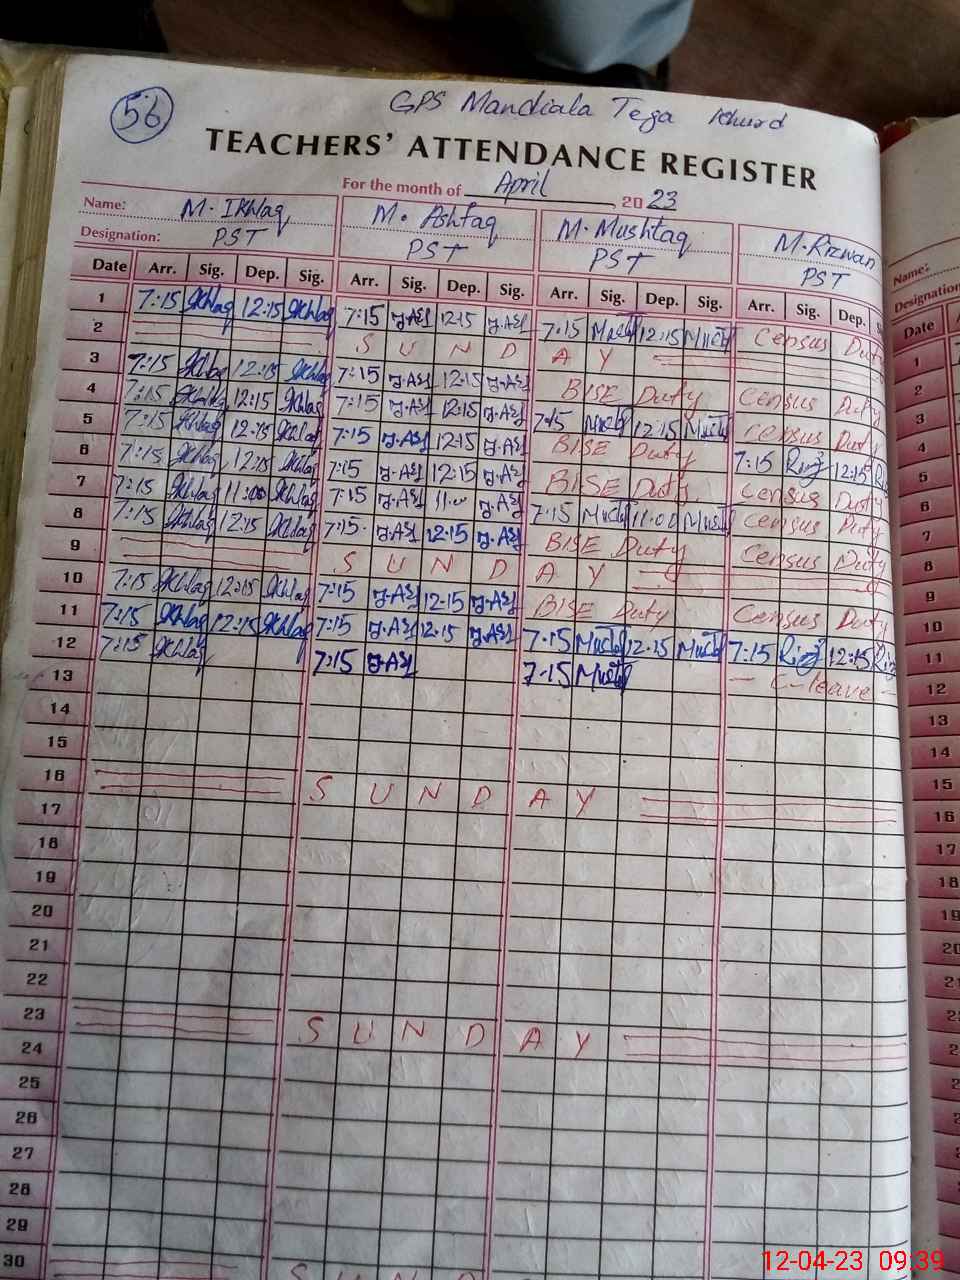 56
GPS Mandiala Tega Khurd
TEACHERS' ATTENDANCE REGISTER
For the month of April, 2023
Name: M. Ikhlaq M. Ashfaq M. Mushtaq M. Rizwan
Designation: PST PST PST PST
Date Arr. Sig. Dep. Sig. Arr. Sig. Dep. Sig. Arr. Sig. Dep. Sig. Arr. Sig. Dep.
1 7:15 Ikhlaq 12:15 Ikhlaq 7:15 12:15 7:15 12:15 Census Duty
2 S U N D A Y
3 7:15 Ikhlaq 12:15 Ikhlaq 7:15 12:15 BISE Duty Census Duty
4 7:15 Ikhlaq 12:15 Ikhlaq 7:15 12:15 7:15 12:15 Census Duty
5 7:15 Ikhlaq 12:15 Ikhlaq 7:15 12:15 BISE Duty 7:15 12:15
6 7:15 Ikhlaq 12:15 Ikhlaq 7:15 12:15 BISE Duty Census Duty
7 7:15 Ikhlaq 11:00 Ikhlaq 7:15 11:00 7:15 11:00 Census Duty
8 7:15 Ikhlaq 12:15 Ikhlaq 7:15 12:15 BISE Duty Census Duty
9 S U N D A Y
10 7:15 Ikhlaq 12:15 Ikhlaq 7:15 12:15 BISE Duty Census Duty
11 7:15 Ikhlaq 12:15 Ikhlaq 7:15 12:15 7:15 12:15 7:15 12:15
12 7:15 Ikhlaq 7:15 7:15 C-leave
13
14
15
16 S U N D A Y
17
18
19
20
21
22
23 S U N D A Y
24
25
26
27
28
29
30 S U N D
Name:
Designation
Date
1
2
3
4
5
6
7
8
9
10
11
12
13
14
15
16
17
18
19
20
21
12-04-23 09:39